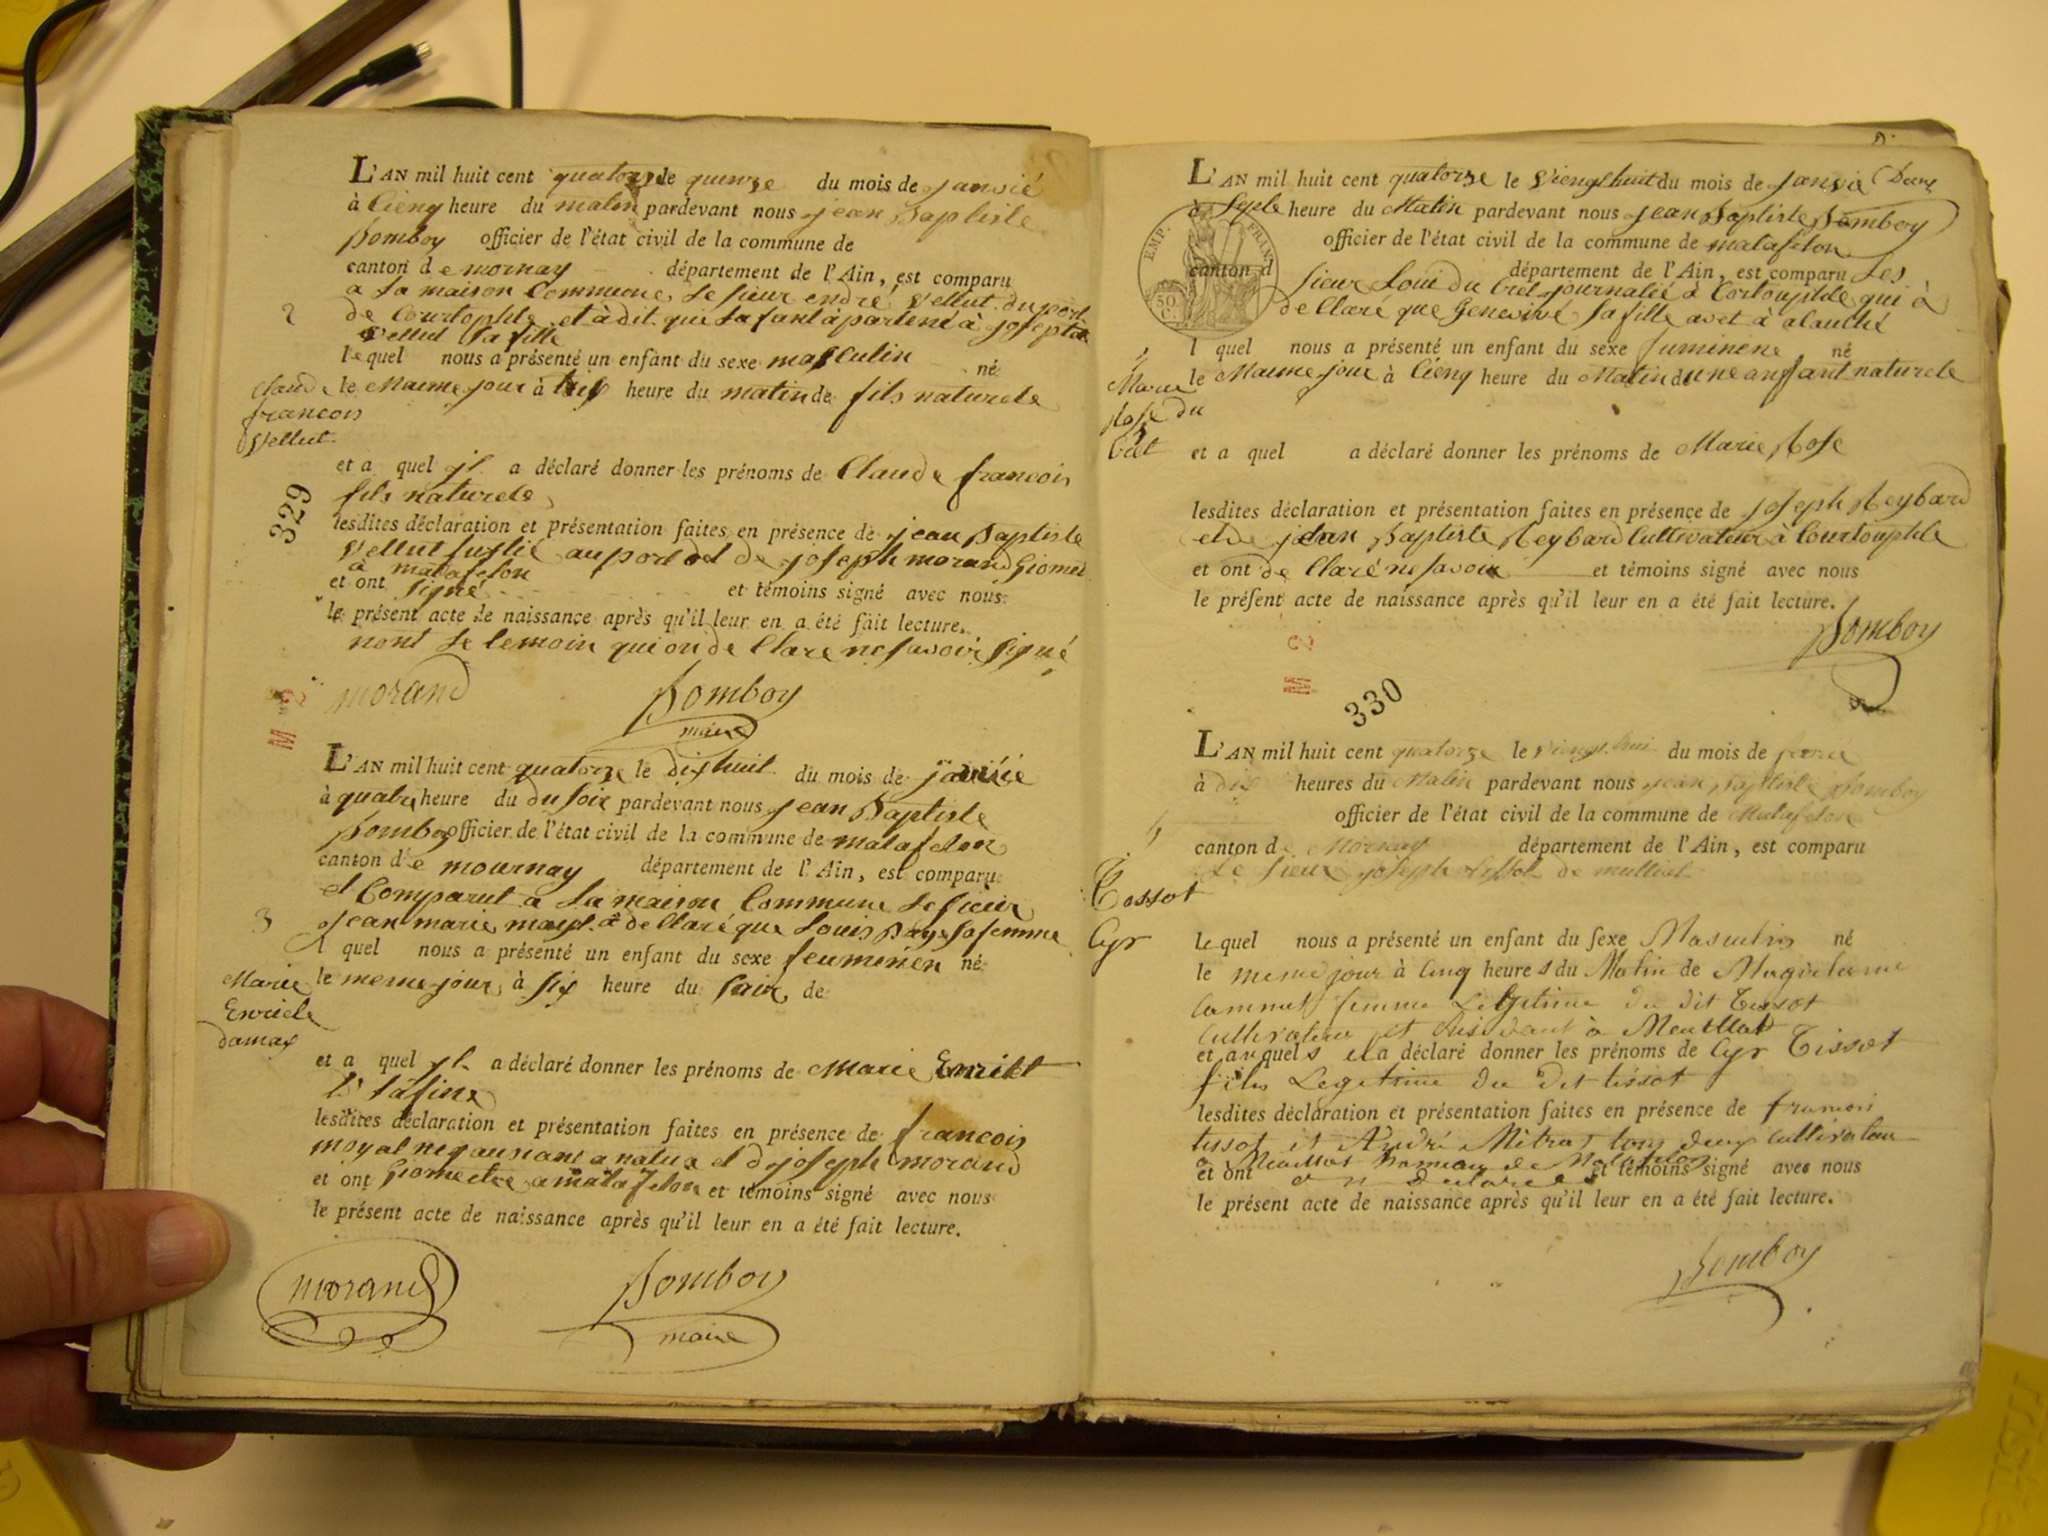 L'AN mil huit cent quatorze le quinze du mois de janvié
à cienq heure du matin pardevant nous jean Baptiste
Bomboy officier de l'état civil de la commune de
canton de mornay département de l'Ain, est comparu
a la maison Commune le sieur endré Vellut du port
2
de Courtophle et à dit que
Vellut sa fille
lequel nous a présenté un enfant du sexe masculin né
le maime jour à heure du matin de fils naturele
Claude
francois
Vellut
et a quel jl a déclaré donner les prénoms de Claude francois
fils naturele
329
lesdites déclaration et présentation faites en présence de jean Baptiste
Vellut au port et de joseph morand Giomet
a matafelon
et ont signé et témoins signé avec nous
le présent acte de naissance après qu'il leur en a été fait lecture.
nont le temoin qui on de Claré ne savoir signé
morand Bomboy
maire
L'AN mil huit cent quatorze le dixhuit du mois de janvié
à quatre heure du du soir pardevant nous jean Baptiste
Bomboy officier de l'état civil de la commune de matafelon
canton de mournay département de l'Ain, est comparu
et Comparut a la maison Commune le sieur
3
jean marie à de Claré que Louis sa femme
l quel nous a présenté un enfant du sexe feuminen né
le meme jour à six heure du soir de
Marie
Enriele
damas
et a quel jl a déclaré donner les prénoms de Marie
lesdites déclaration et présentation faites en présence de francois
moyal a et de joseph morand
et ont Giometre a matafelon et témoins signé avec nous
le présent acte de naissance après qu'il leur en a été fait lecture.
morand Bomboy
maire
L'AN mil huit cent quatorze le viengt huit du mois de janvie
à septe heure du Matin pardevant nous jean Baptiste Bomboy
officier de l'état civil de la commune de matafelon
canton d département de l'Ain, est comparu Les
sieur Loui du Cret journalié à Cortouphle qui à
de Claré que Genevivé sa fille
EMP. FRAN
50
C.
l quel nous a présenté un enfant du sexe fuminene né
le Maime jour à Cienq heure du Matin d'une anffant naturele
Marie
Rose du
Cret
et a quel a déclaré donner les prénoms de Marie Rose
lesdites déclaration et présentation faites en présence de joseph Reybard
et de jean Baptiste Reybard Cultivateur à Courtouphle
et ont de Claré ne savoir et témoins signé avec nous
le présent acte de naissance après qu'il leur en a été fait lecture.
Bomboy
330
L'AN mil huit cent quatorze le viengt huit du mois de
à dix heures du Matin pardevant nous jean Baptiste Bomboy
officier de l'état civil de la commune de Matafelon
canton de Mornay département de l'Ain, est comparu
Le sieur joseph Tissot de
Tossot
Cyr
Le quel nous a présenté un enfant du sexe Masculin né
le meme jour à Cinq heures du Matin de
femme Legitime du dit Tissot
Cultivateur et à
et auquels il a déclaré donner les prénoms de Cyr Tissot
fils Legitime du dit tissot
lesdites déclaration et présentation faites en présence de francois
tissot et André tous deux cultivateur
a hameau de Matafelon
et ont et témoins signé avec nous
le présent acte de naissance après qu'il leur en a été fait lecture.
Bomboy